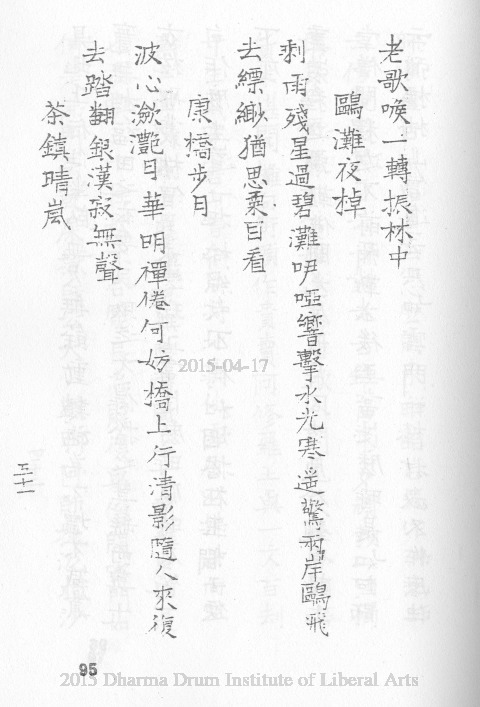 老歌喚一轉振林中
鷗灘夜棹
剩雨殘星過碧灘咿啞響擊水光寒遥驚兩岸鷗飛
去縹緲猶思乘目看
康橋步月
波心瀲灔月華明禪倦何妨橋上行清影隨人來復
去踏翻銀漢寂無聲
茶鎮晴嵐
五十一
95
2015-04-17
2015 Dharma Drum Institute of Liberal Arts